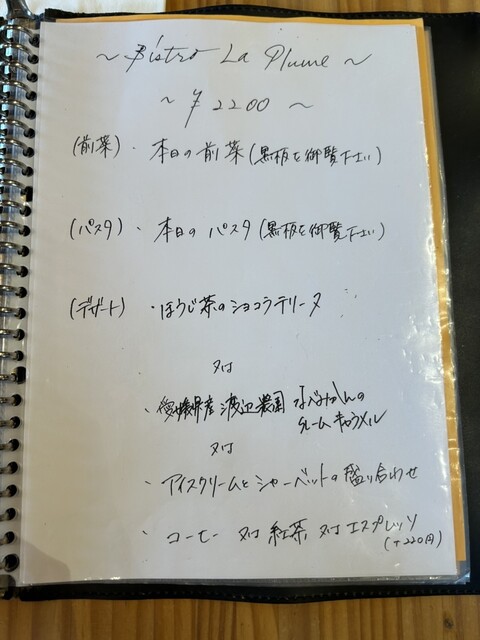 ～ Bistro La Plume ～
～ ¥2200 ～
(前菜)・本日の前菜(黒板を御覧下さい)
(パスタ)・本日のパスタ(黒板を御覧下さい)
(デザート)・ほうじ茶のショコラテリーヌ
又は
・愛媛県産 渡辺農園 なべみかんの
クレームキャラメル
又は
・アイスクリームとシャーベットの盛り合わせ
・コーヒー 又は 紅茶 又は エスプレッソ
(+220円)